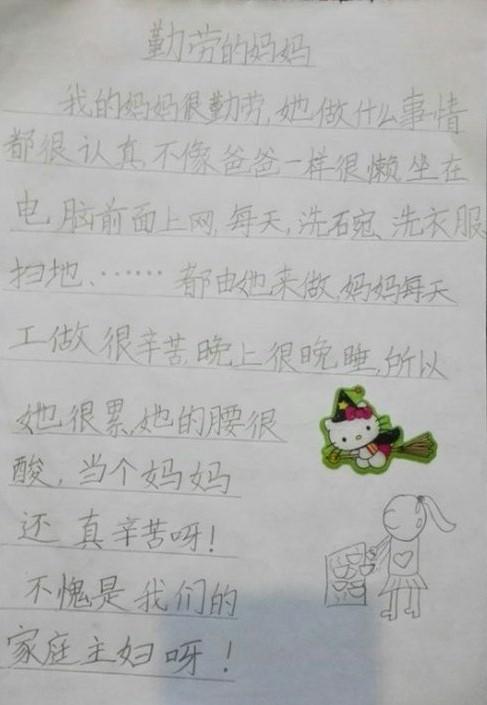 勤劳的妈妈
我的妈妈很勤劳,她做什么事情
都很认真,不像爸爸一样很懒坐在
电脑前面上网,每天,洗石宛、洗衣服
扫地、······都由她来做,妈妈每天
工做很辛苦,晚上很晚睡,所以
她很累,她的腰很
酸,当个妈妈
还真辛苦呀!
不愧是我们的
家庭主妇呀!